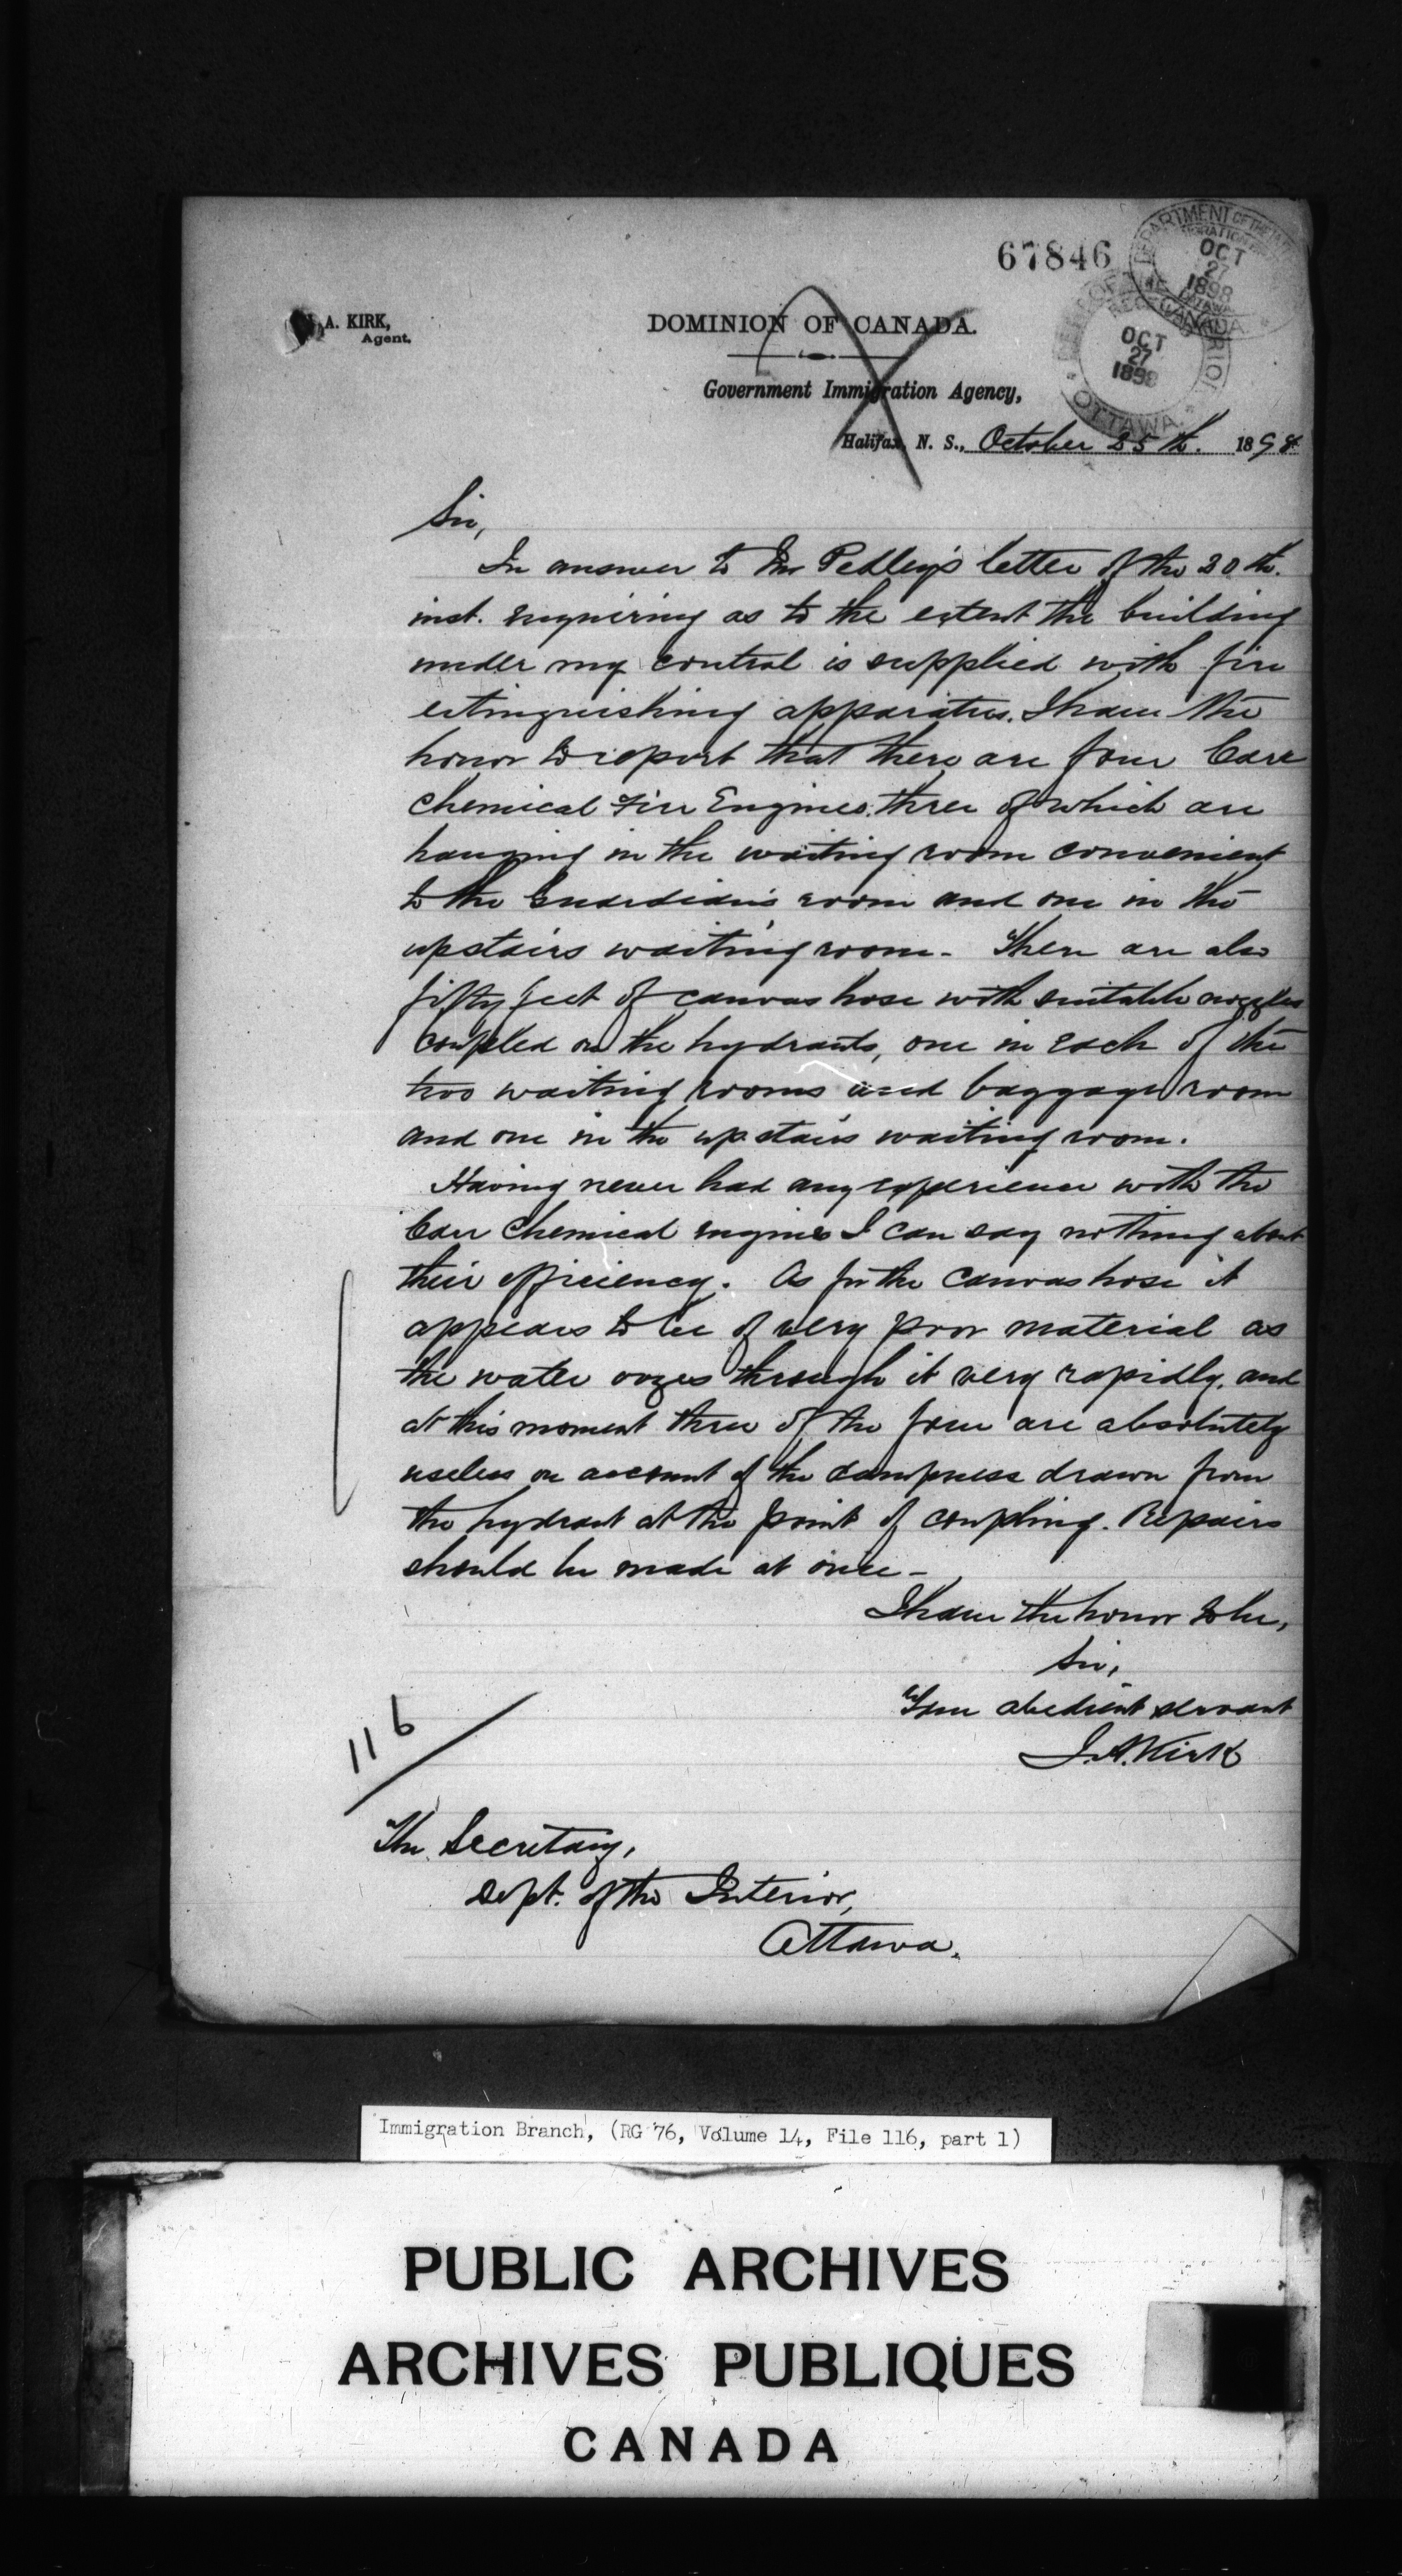 67846
DEPARTMENT OF THE
OCT
27
1898
OTTAWA
CANADA
OCT
27
1898
OTTAWA
A. KIRK,
Agent.
DOMINION OF CANADA.
Government Immigration Agency,
Halifax, N. S., October 25th. 1898
Sir,
In answer to Mr Pedley's letter of the 20th.
inst. enquiring as to the extent the building
under my control is supplied with fire
extinguishing apparatus. I have the
honor to report that there are four Carr
Chemical Fire Engines. three of which are
hanging in the waiting room convenient
to the Guardian's room and one in the
upstairs waiting room. There are also
fifty feet of canvas hose with suitable nozzles
coupled on the hydrants, one in each of the
two waiting rooms and baggage room
and one in the upstairs waiting room.
Having never had any experience with the
Carr Chemical engines I can say nothing about
their efficiency. As for the canvas hose it
appears to be of very poor material as
the water oozes through it very rapidly. and
at this moment three of the four are absolutely
useless on account of the dampness drawn from
the hydrant at the point of coupling. Repairs
should be made at once -
I have the honor to be,
Sir,
Your obedient servant
J.A. Kirk
116
The Secretary,
Dept. of the Interior,
Ottawa.
Immigration Branch, (RG 76, Volume 14, File 116, part 1)
PUBLIC ARCHIVES
ARCHIVES PUBLIQUES
CANADA